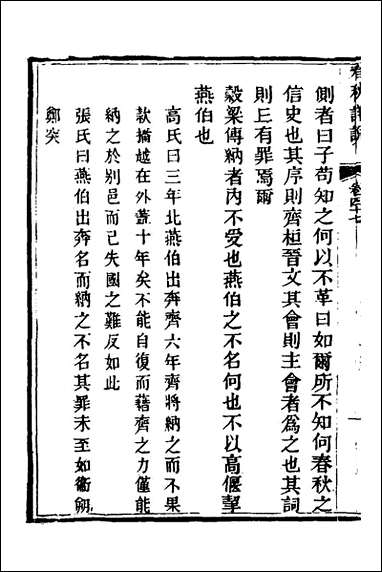 側者曰子苟知之何以不革曰如爾所不知何春秋之
信史也其序則齊桓晉文其會則主會者為之也其詞
則丘有罪焉爾
穀粱傳納者內不受也燕伯之不名何也不以高偃挈
燕伯也
高氏曰三年北燕伯出奔齊六年齊將納之而不果
款播越在外蓋十年矣不能自復而藉齊之力僅能
納之於別邑而已失國之難反如此
張氏曰燕伯出奔名而納之不名其罪未至如衞朔
鄭突